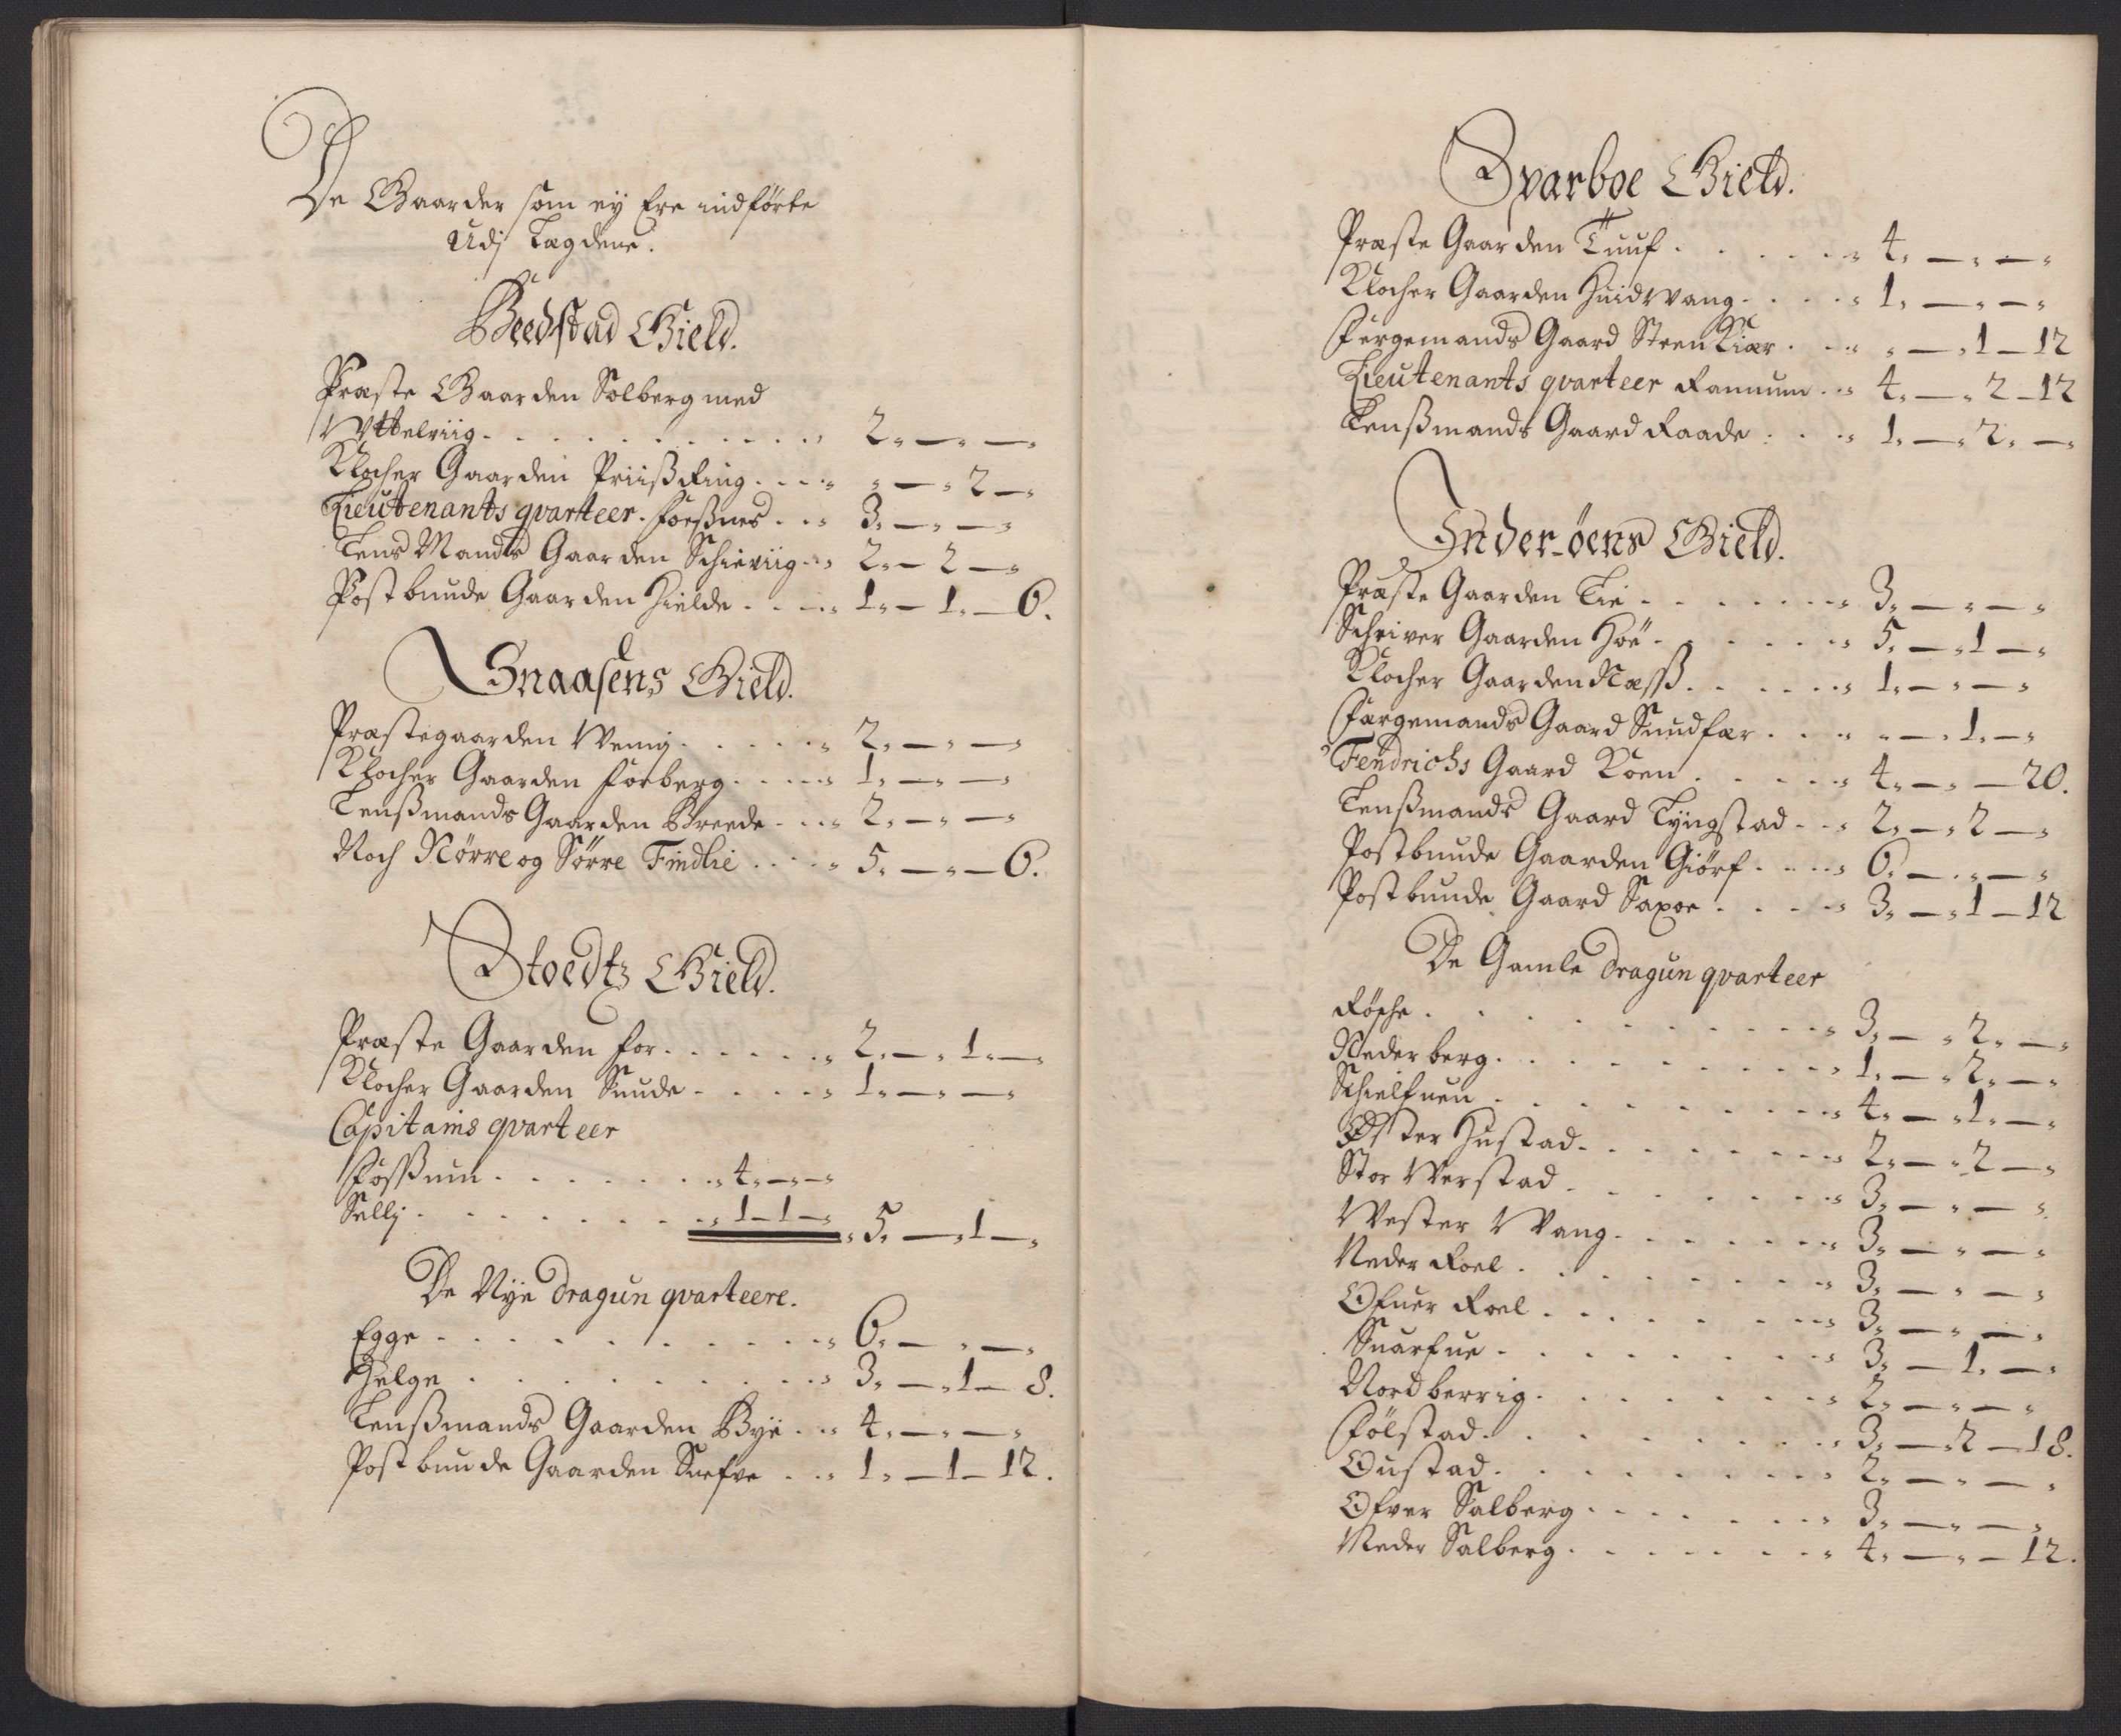 De Gaarder som ey Ere indførte
Udj Legdene.
Beedstad Gield.
Præste Gaarden Solberg med
Wttelviig . . . . . . . . . . . 2„ — „ — „
Klocher Gaarden Priißring . . . . „ — „ 2 — „
Lieutenants qvarteer. Forßnes . . „ 3„ — „ — „
Lens Mands Gaarden Schieviig . . „ 2„ — 2 — „
Postbunde Gaarden Hielde . . . . „ 1„ — 1„ — 6.
Snaasens Gield.
Præstegaarden Wenig . . . . . „ 2„ — „ — „
Klocher Gaarden Forberg . . . . „ 1„ — „ — „
Lenßmands Gaarden Breede . . . „ 2„ — „ — „
Noch Nørre og Sørre Findlie . . . . „ 5„ — „ — 6.
Stoedtz Gield.
Præste Gaarden For . . . . . . „ 2„ — „ 1„ — „
Klocher Gaarden Sunde . . . . . „ 1„ — „ — „
Capitains qvarteer
Foßum . . . . . . . . „ 4„ — „ — „
Sellj . . . . . . . . „ 1 — 1 — „ 5„ — „ 1 — „
De Nye dragun qvarteere.
Egge . . . . . . . . . . . „ 6„ — „ — „
Helge . . . . . . . . . . „ 3„ — „ 1 — 8.
Lenßmands Gaarden Bye . . „ 4„ — „ — „
Postbunde Gaarden Snefve . . „ 1„ — 1 — 12.
Sparboe Gield.
Præste Gaarden Tuuf . . . . . . „ 4„ — „ — „
Klocher Gaarden Huidwang . . . . „ 1„ — „ — „
Færgemands Gaard Steenkiær . . „ „ — „ 1 — 12
Lieutenants qvarteer Rannum . . „ 4„ — „ 2 — 12
Lenßmands Gaard Raade . . . „ 1„ — „ 2„ — „
Inder-øens Gield.
Præste Gaarden Lie . . . . . . . „ 3„ — „ — „
Schriver Gaarden Hoë . . . . . . „ 5„ — „ 1 — „
Klocher Gaarden Næss . . . . . . „ 1„ — „ — „
Færgemands Gaard Sundfær . . . „ „ — „ 1„ — „
Fendrichs Gaard Koen . . . . . „ 4„ — „ — 20.
Lenßmands Gaard Lyngstad . . „ 2„ — „ 2 — „
Postbunde Gaarden Giørf . . . . „ 6„ — „ — „
Postbunde Gaard Saxoe . . . . „ 3„ — „ 1 — 12
De Gamle dragun qvarteer
Røsche . . . . . . . . . . „ 3„ — „ 2„ — „
Nederberg . . . . . . . . . „ 1„ — „ 2„ — „
Schielfuen . . . . . . . . . „ 4„ — „ 1„ — „
Øster Hustad . . . . . . . . „ 2„ — „ 2 — „
Stor Werstad . . . . . . . . „ 3„ — „ — „
Wester Wang . . . . . . . „ 3„ — „ — „
Neder Roel . . . . . . . . . „ 3„ — „ — „
Ofuer Roel . . . . . . . . „ 3„ — „ — „
Suarfue . . . . . . . . . „ 3„ — 1„ — „
Nordberrig . . . . . . . . „ 2„ — „ — „
Følstad . . . . . . . . . „ 3„ — „ 2 — 18.
Oustad . . . . . . . . . „ 2„ — „ — „
Ofver Salberg . . . . . . . „ 3„ — „ — „
Neder Salberg . . . . . . . „ 4„ — „ — 12.